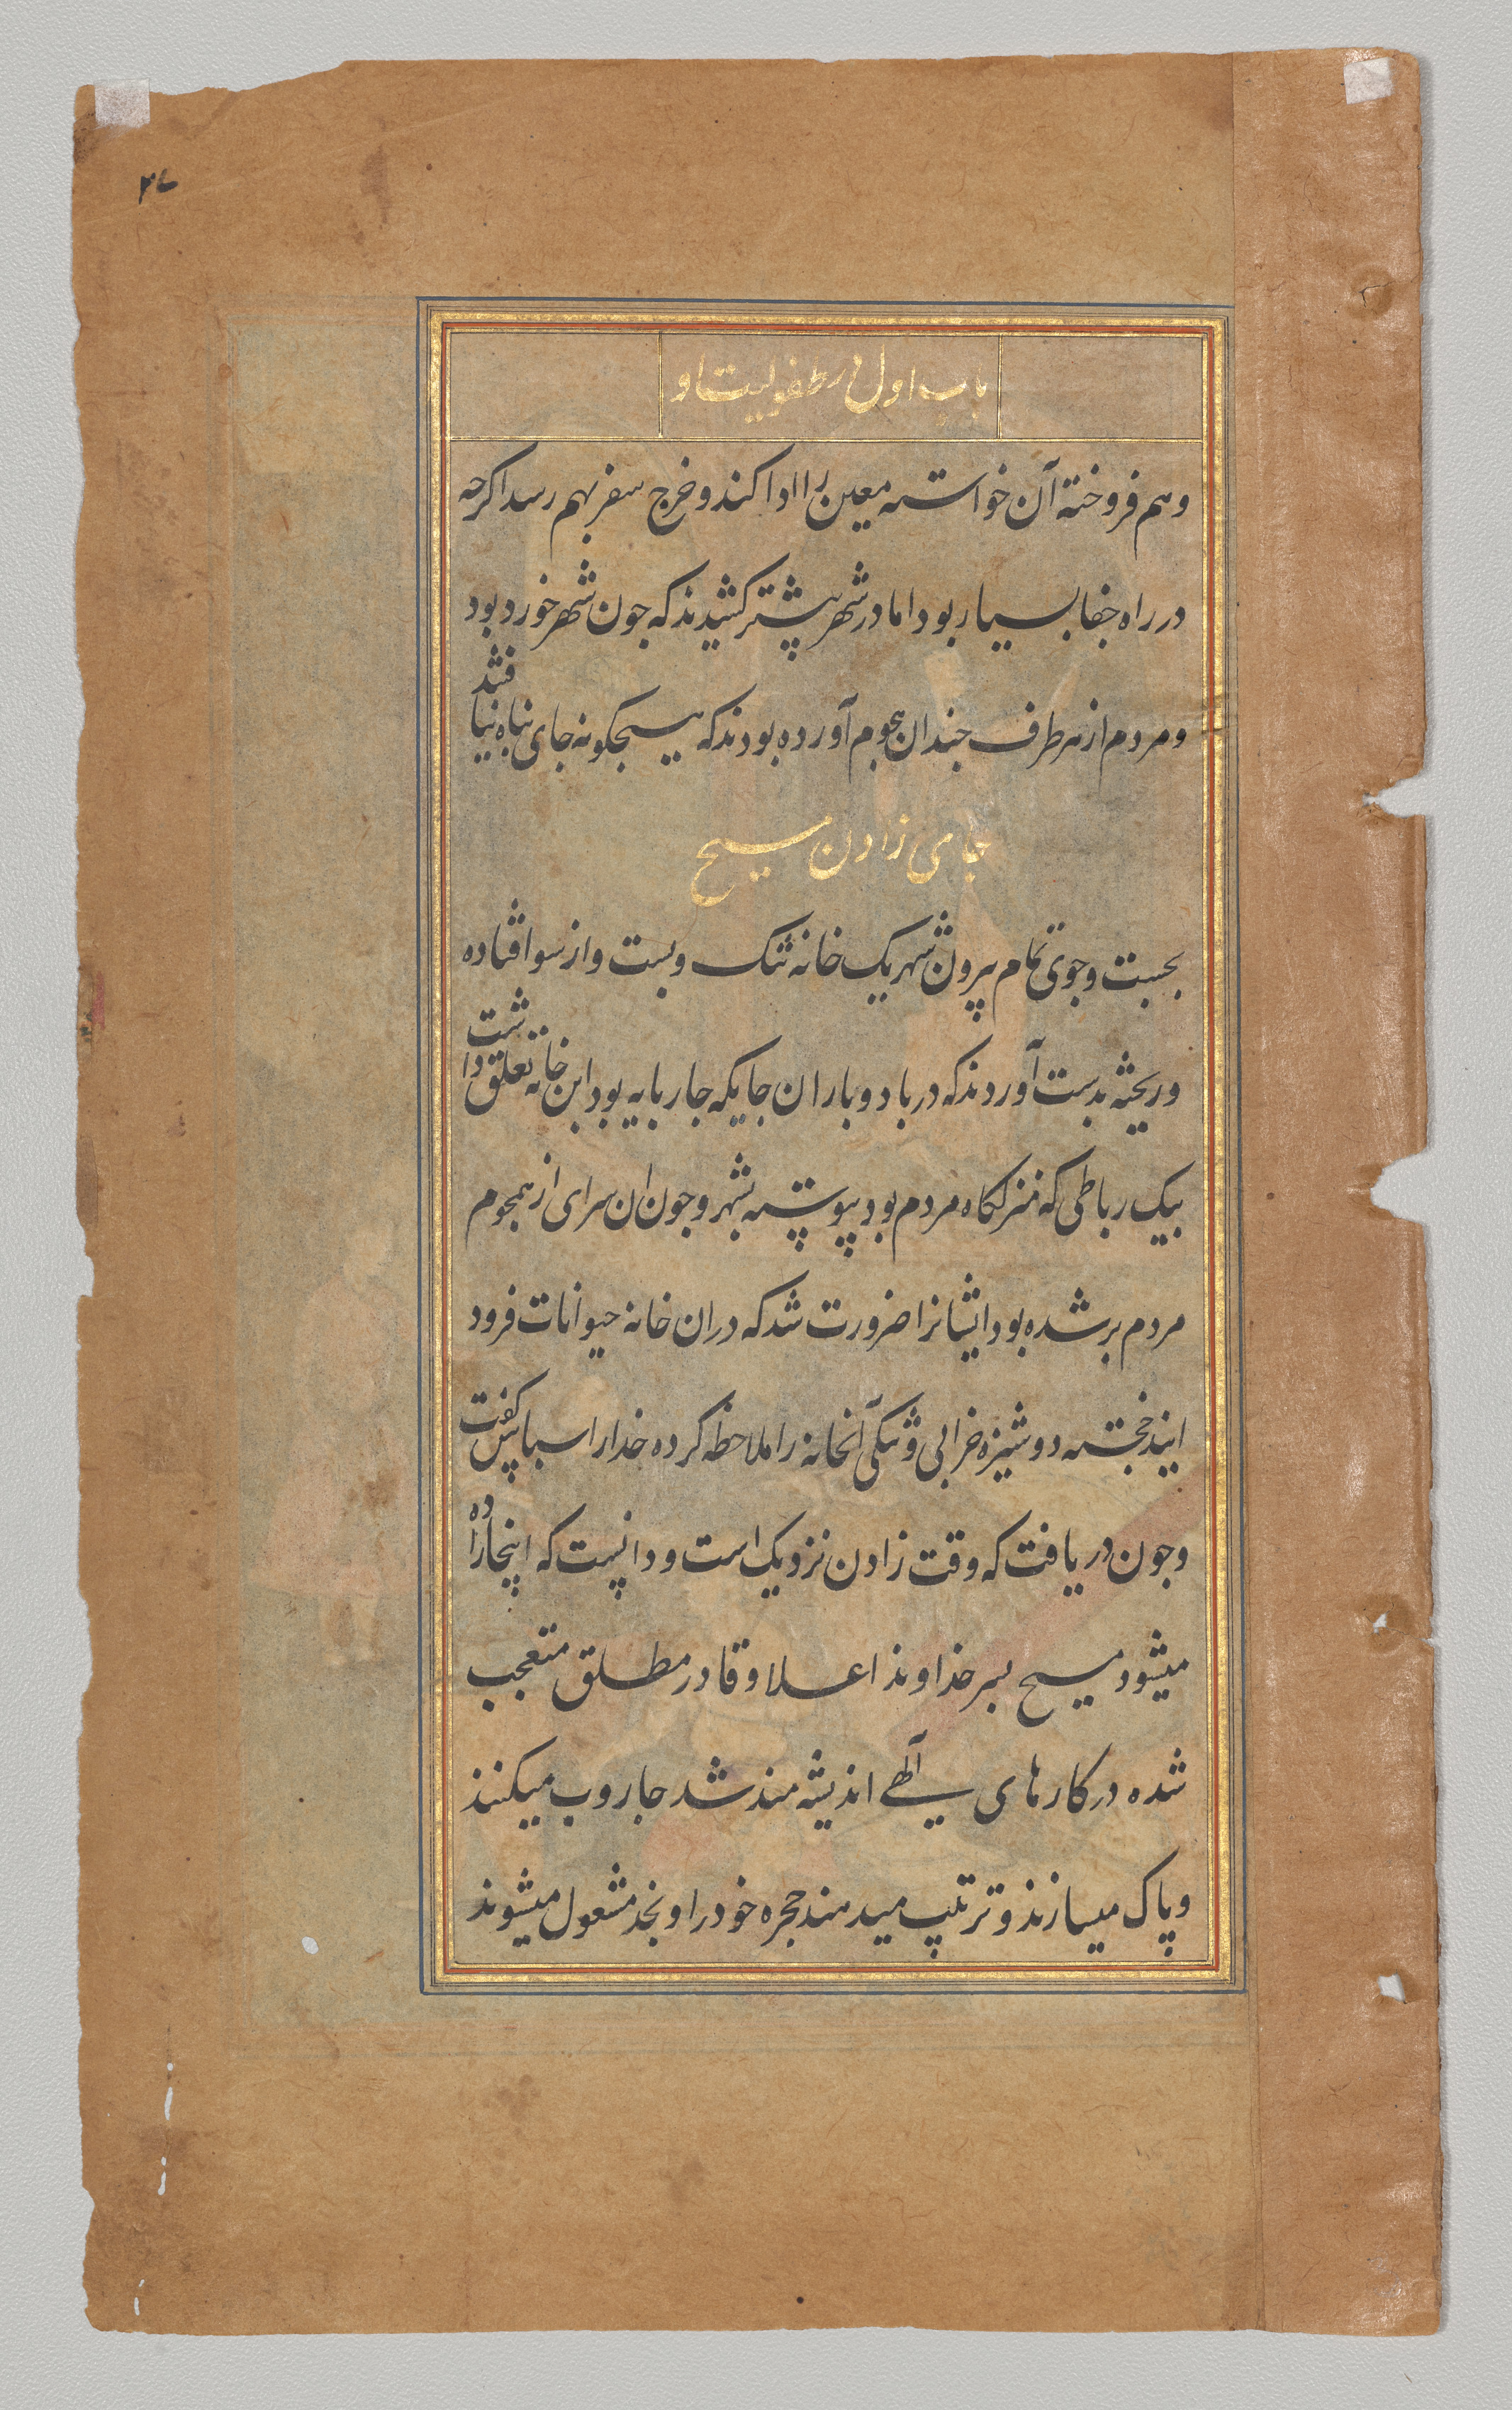 ۳۷
باب اول در طفولیت او
و هم فروخته آن خواسته معین را ادا کند و خرج سفر بهم رسد اکرجه
در راه جفا بسیار بود اما در شهر پیشتر کشیدند که جون شهر خورد بود
و مردم از هر طرف جندان هجوم آورده بودند که هیجکونه جای پناه نیافتند
جای زادن مسیح
بجست و جوی تمام بیرون شهر یک خانه تنک و بست و از سو افتاده
و ریخته بدست آوردند که در باد و باران جایکه جاربایه بود این خانه تعلق داشت
بیک رباطی که منزلکاه مردم بود پیوسته بشهر و جون ان سرای از هجوم
مردم بر شده بود ایشانرا ضرورت شد که در ان خانه حیوانات فرود
ایند خجسته دوشیزه خرابی و تنکی آنخانه را ملاحظه کرده خدا را سپاس کفت
و جون دریافت که وقت زادن نزدیک است و دانست که اینجا زاده
میشود مسیح بسر خداوند اعلا و قادر مطلق متعجب
شده در کارهای الهی اندیشه مند شد جاروب میکنند
و پاک میسازند و ترتیب میدهند حجره خود را و بخد مشغول میشوند